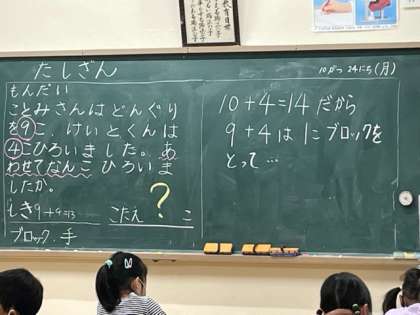 たしざん
10がつ24にち(月)
もんだい
ことみさんはどんぐり
を9こ、けいとくんは
4こひろいました。あ
わせてなんこひろいま
したか。
しき9+4=13
こたえ ? こ
ブロック、手
10+4=14だから
9+4は1こブロックを
とって…